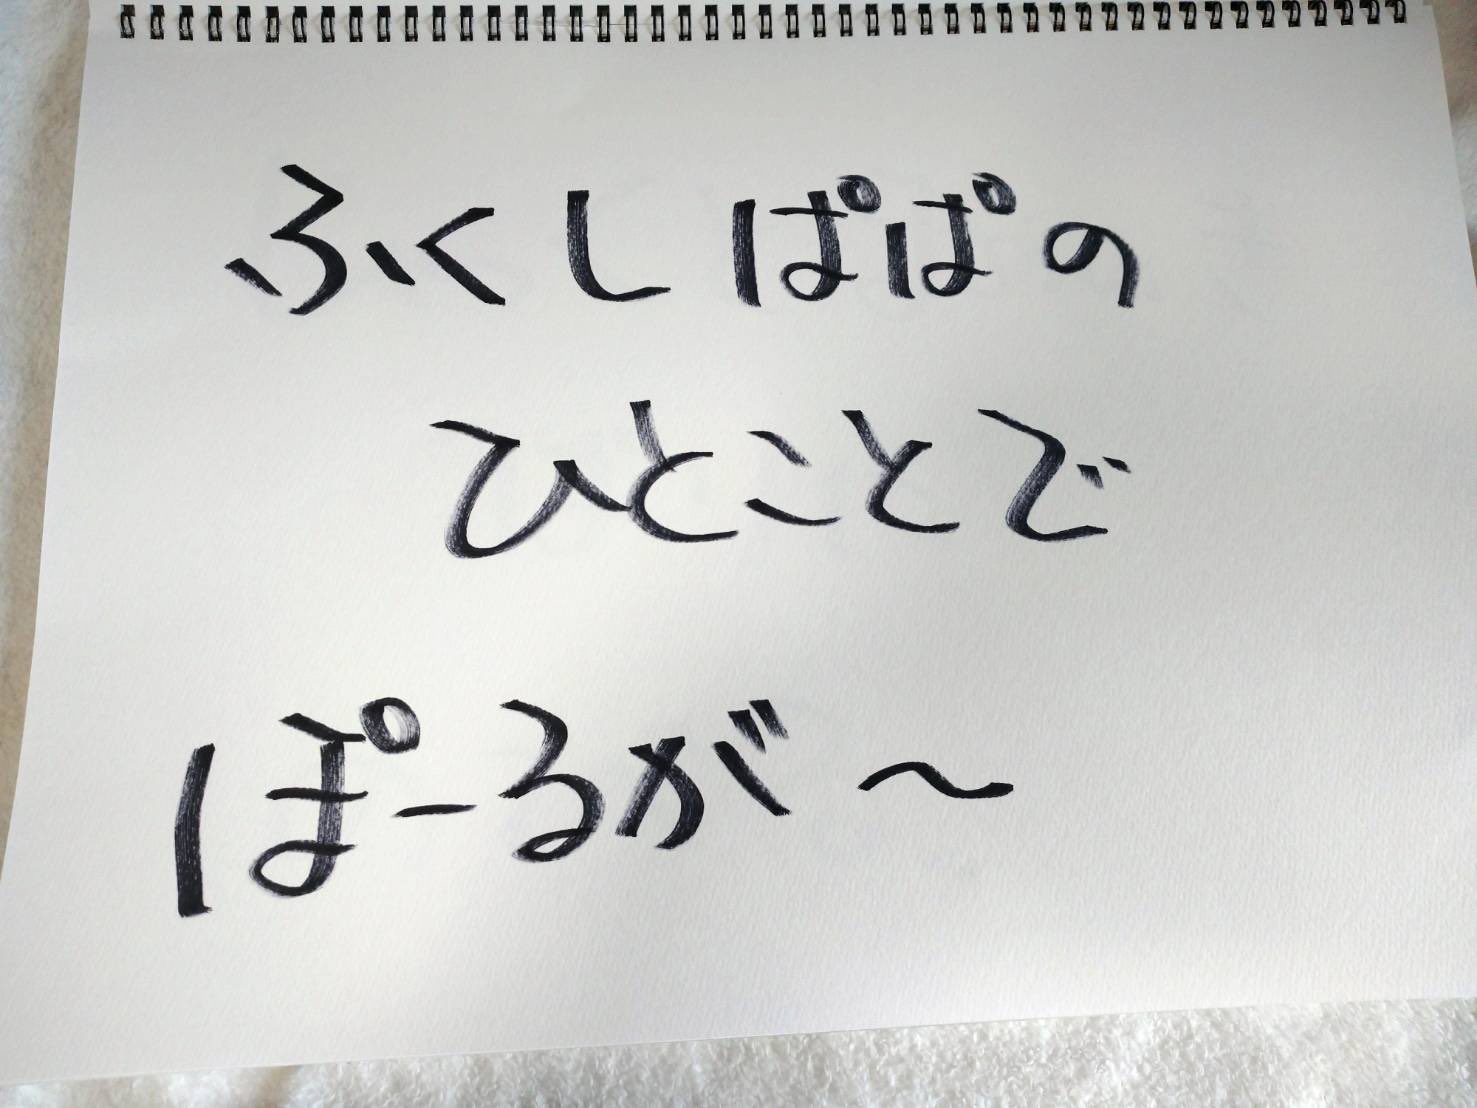 ふくしぱぱの
ひとことで
ぽーるが〜